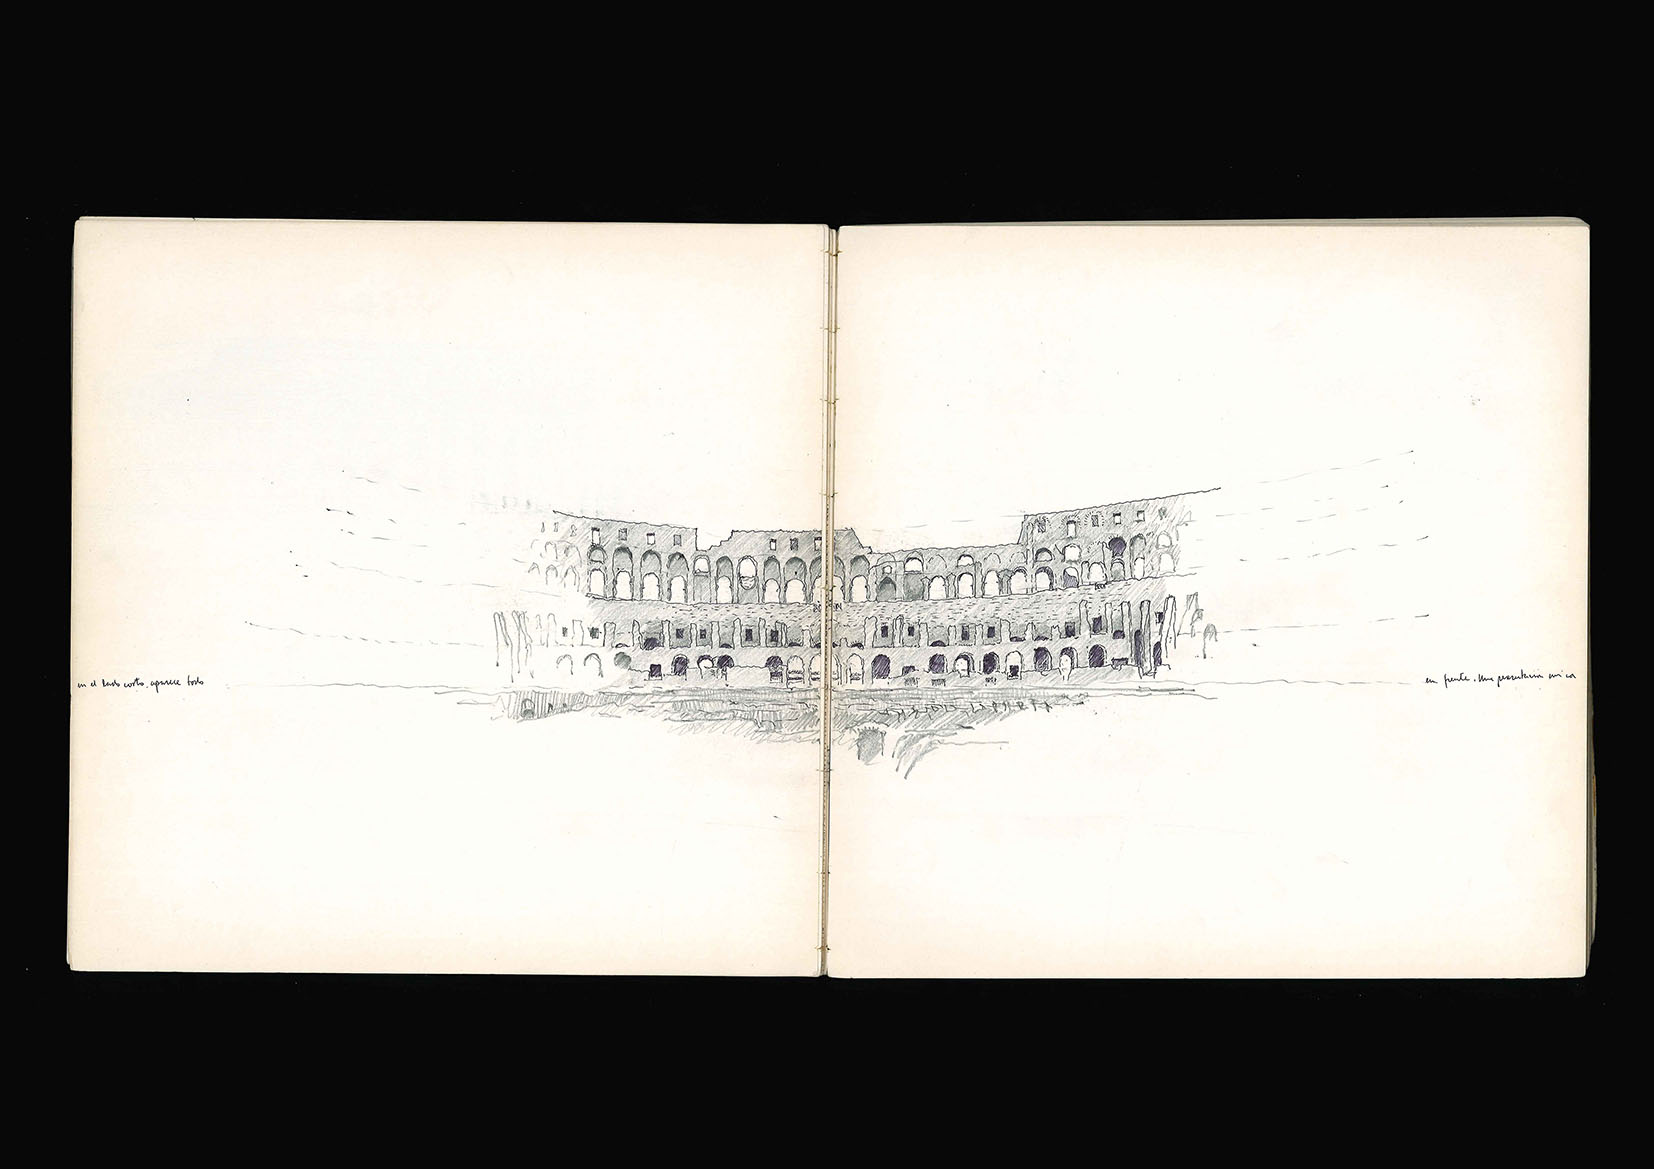 en el lado corto, aparece todo
en frente. Una presentación única